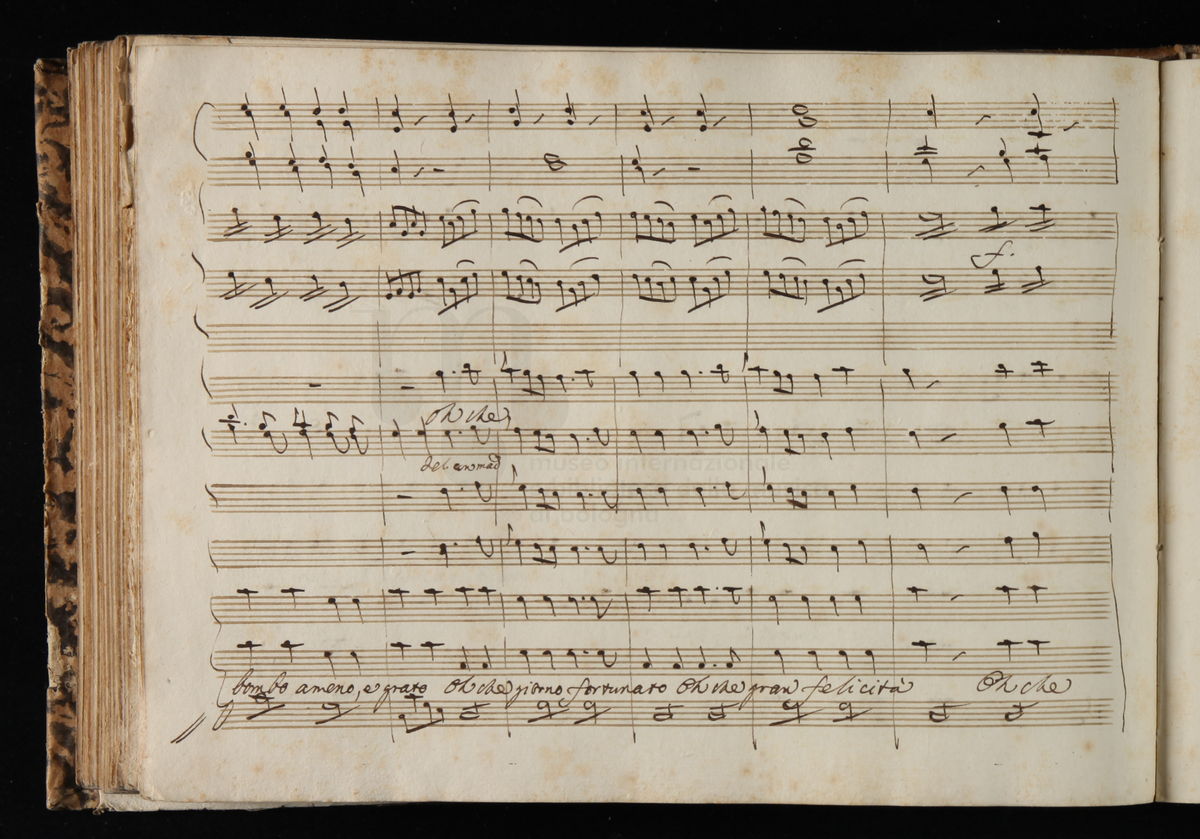 f.
Oh che
del
museo internazionale
di bologna
bombo ameno, e grato Oh che giorno fortunato Oh che gran felicità Oh che